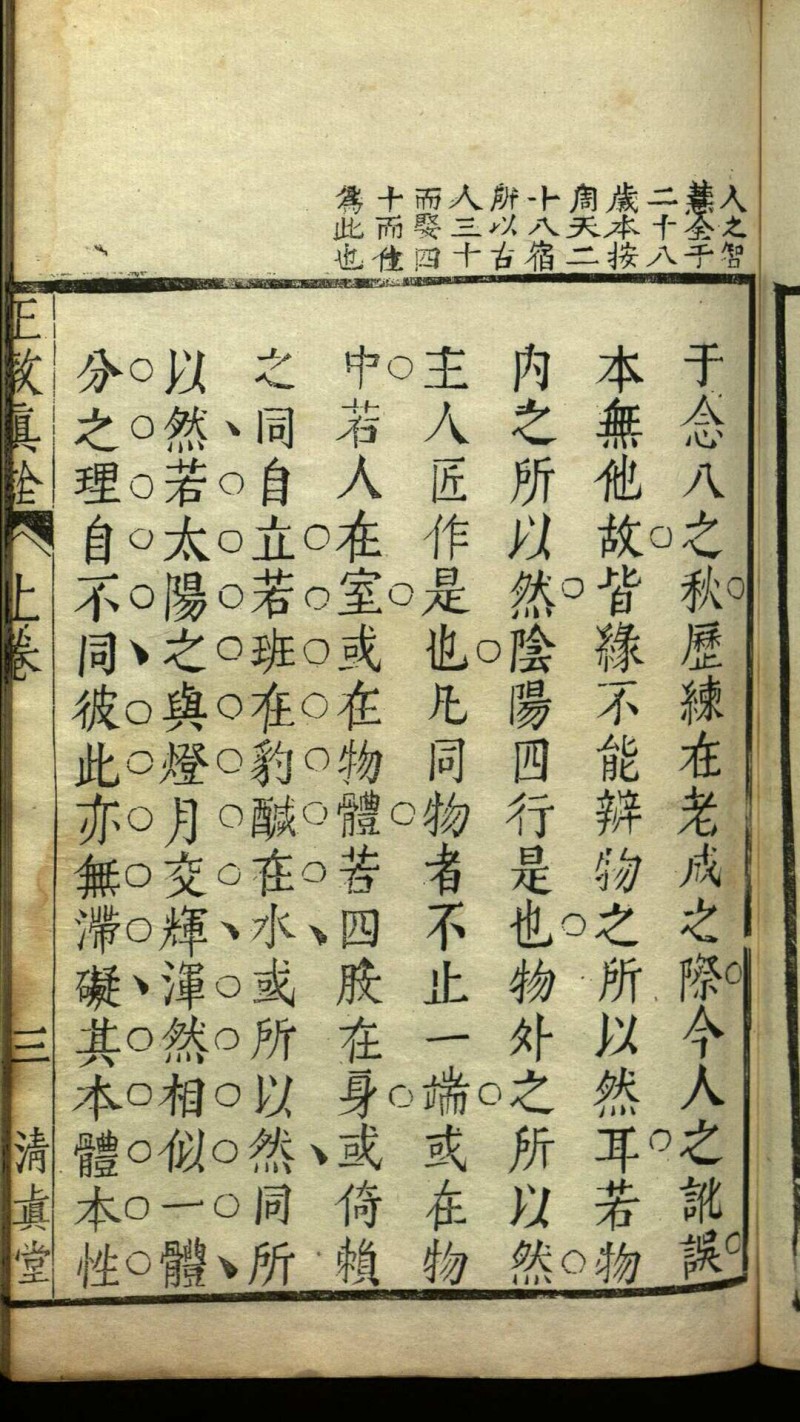 人之智
慧全于
二十八
歲本按
周天二
十八宿
所以古
人三十
而娶四
十而仕
爲此也
于念八之秋歷練在老成之際今人之訛誤
本無他故皆緣不能辨物之所以然耳若物
内之所以然陰陽四行是也物外之所以然
主人匠作是也凡同物者不止一端或在物
中若人在室或在物體若四肢在身或倚賴
之同自立若班在豹醎在水或所以然同所
以然若太陽之與燈月交輝渾然相似一體
分之理自不同彼此亦無滯礙其本體本性
正教真詮 上卷 三 清真堂